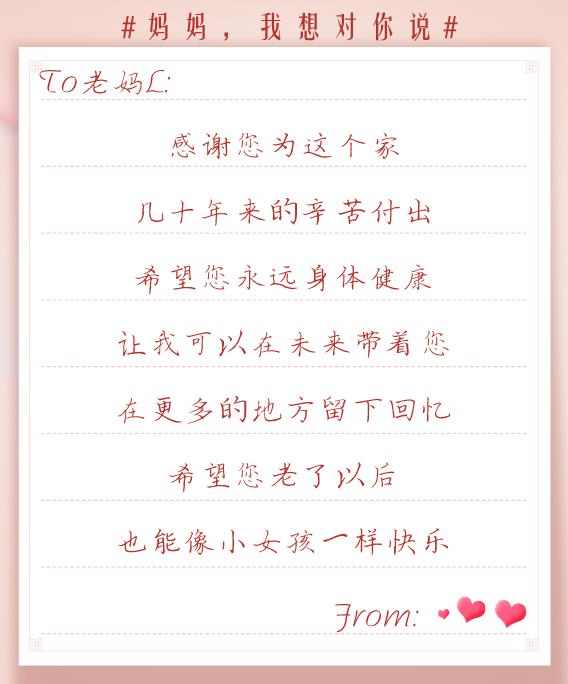 #妈妈，我想对你说#
To老妈L:
感谢您为这个家
几十年来的辛苦付出
希望您永远身体健康
让我可以在未来带着您
在更多的地方留下回忆
希望您老了以后
也能像小女孩一样快乐
From: